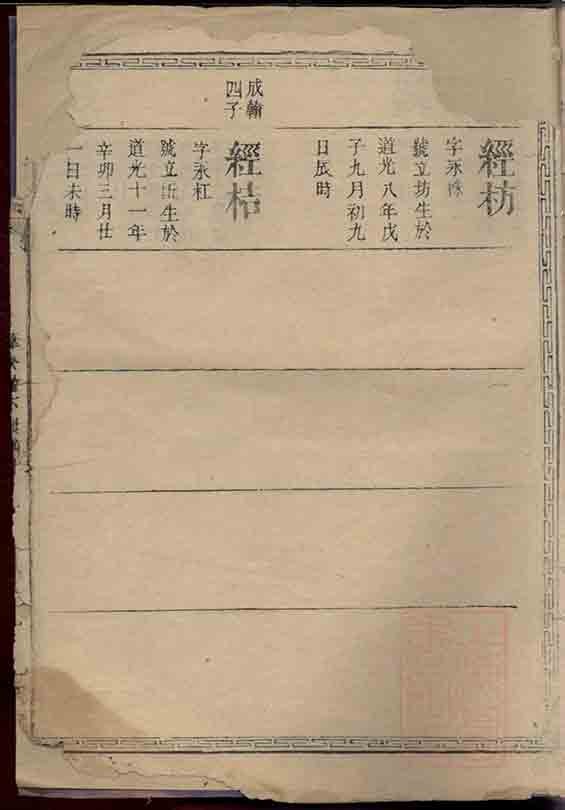 經枋
字永
號立坊生於
道光八年戊
子九月初九
日辰時
成翰
四子
經桔
字永杠
號立 生於
道光十一年
辛卯三月廿
一日未時